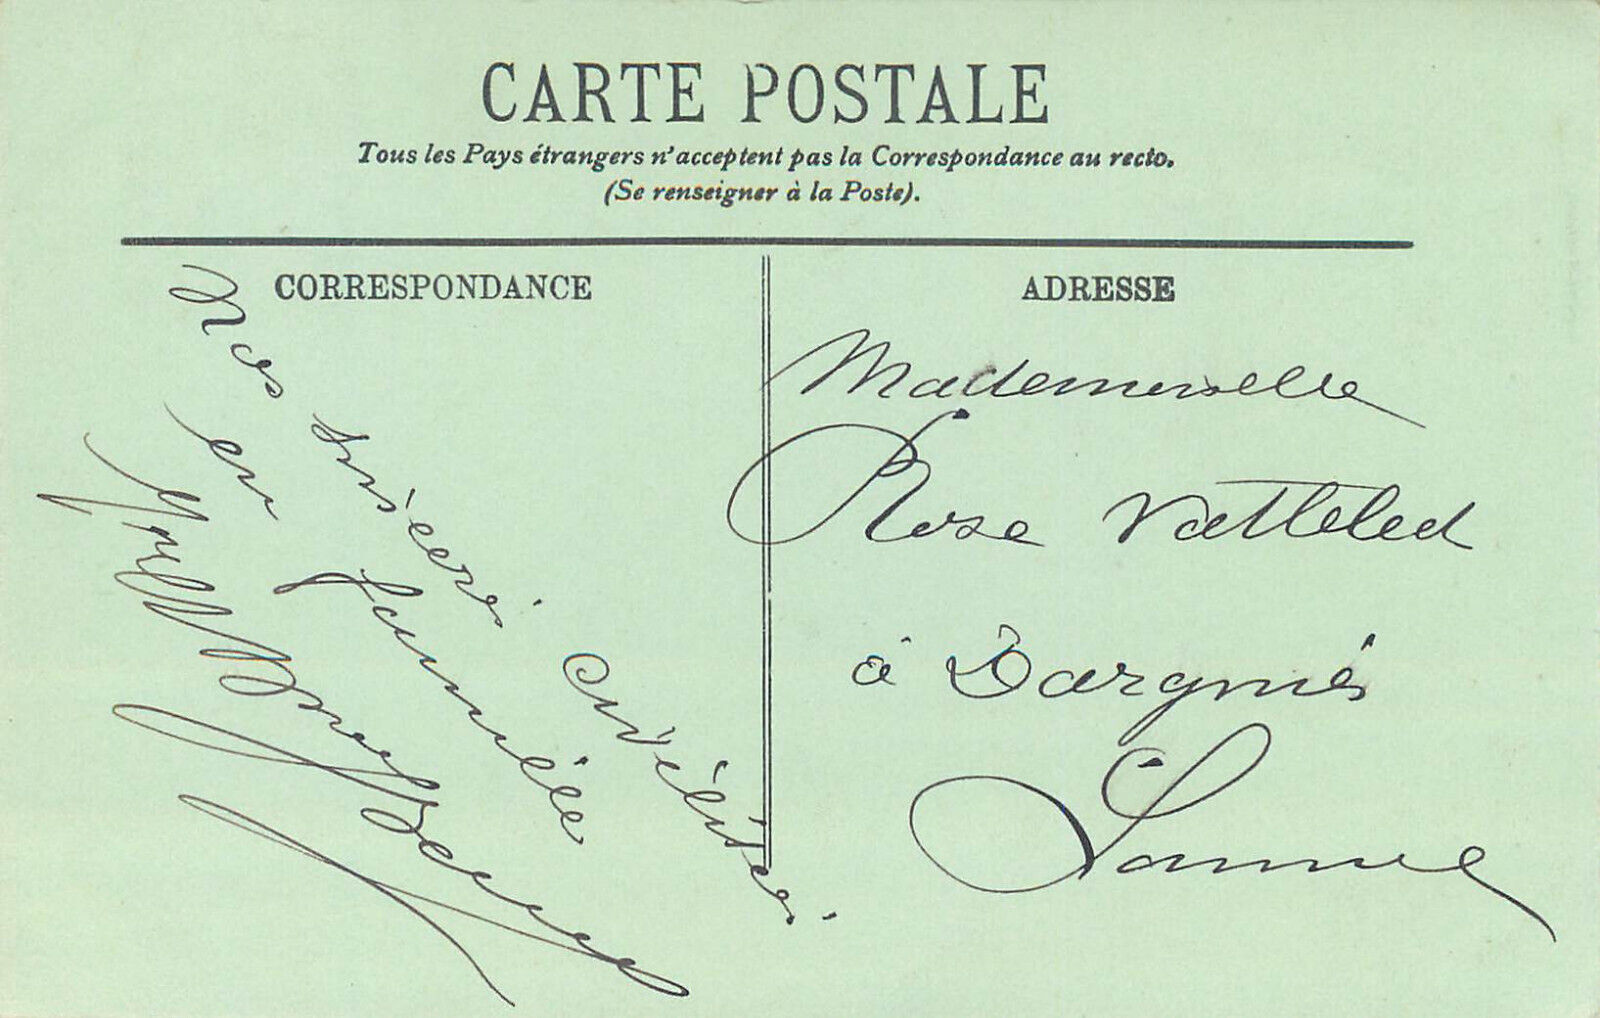 CARTE POSTALE
Tous les Pays étrangers n'acceptent pas la Correspondance au recto.
(Se renseigner à la Poste).
CORRESPONDANCE
Nos sincères civilités
en famille
ADRESSE
Mademoiselle
Rose Vattebled
à Dargnies
Somme